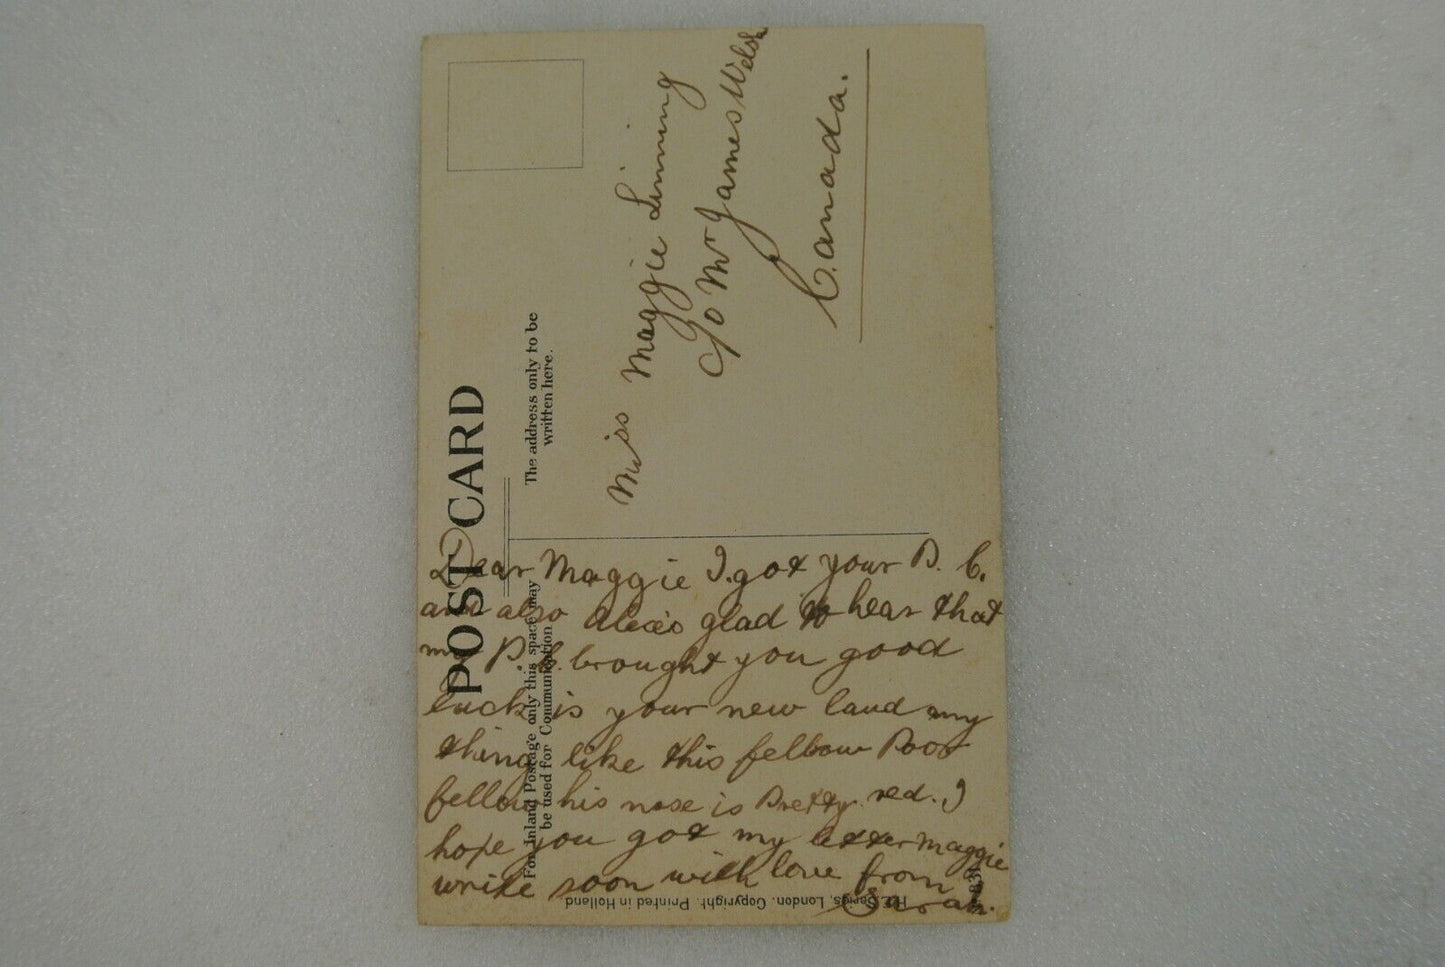 POST CARD
For Inland Postage only this space may
be used for Communication.
The address only to be
written here.
Miss Maggie Linning
c/o Mr James Welsh
Canada.
Dear Maggie I got your P. C.
and also Alexis glad to hear that
my P. C. brought you good
luck is your new land my
thing like this fellow Poor
fellow his nose is Pretty red. I
hope you got my letter Maggie
write soon with love from
Sarah.
Series, London. Copyright. Printed in Holland